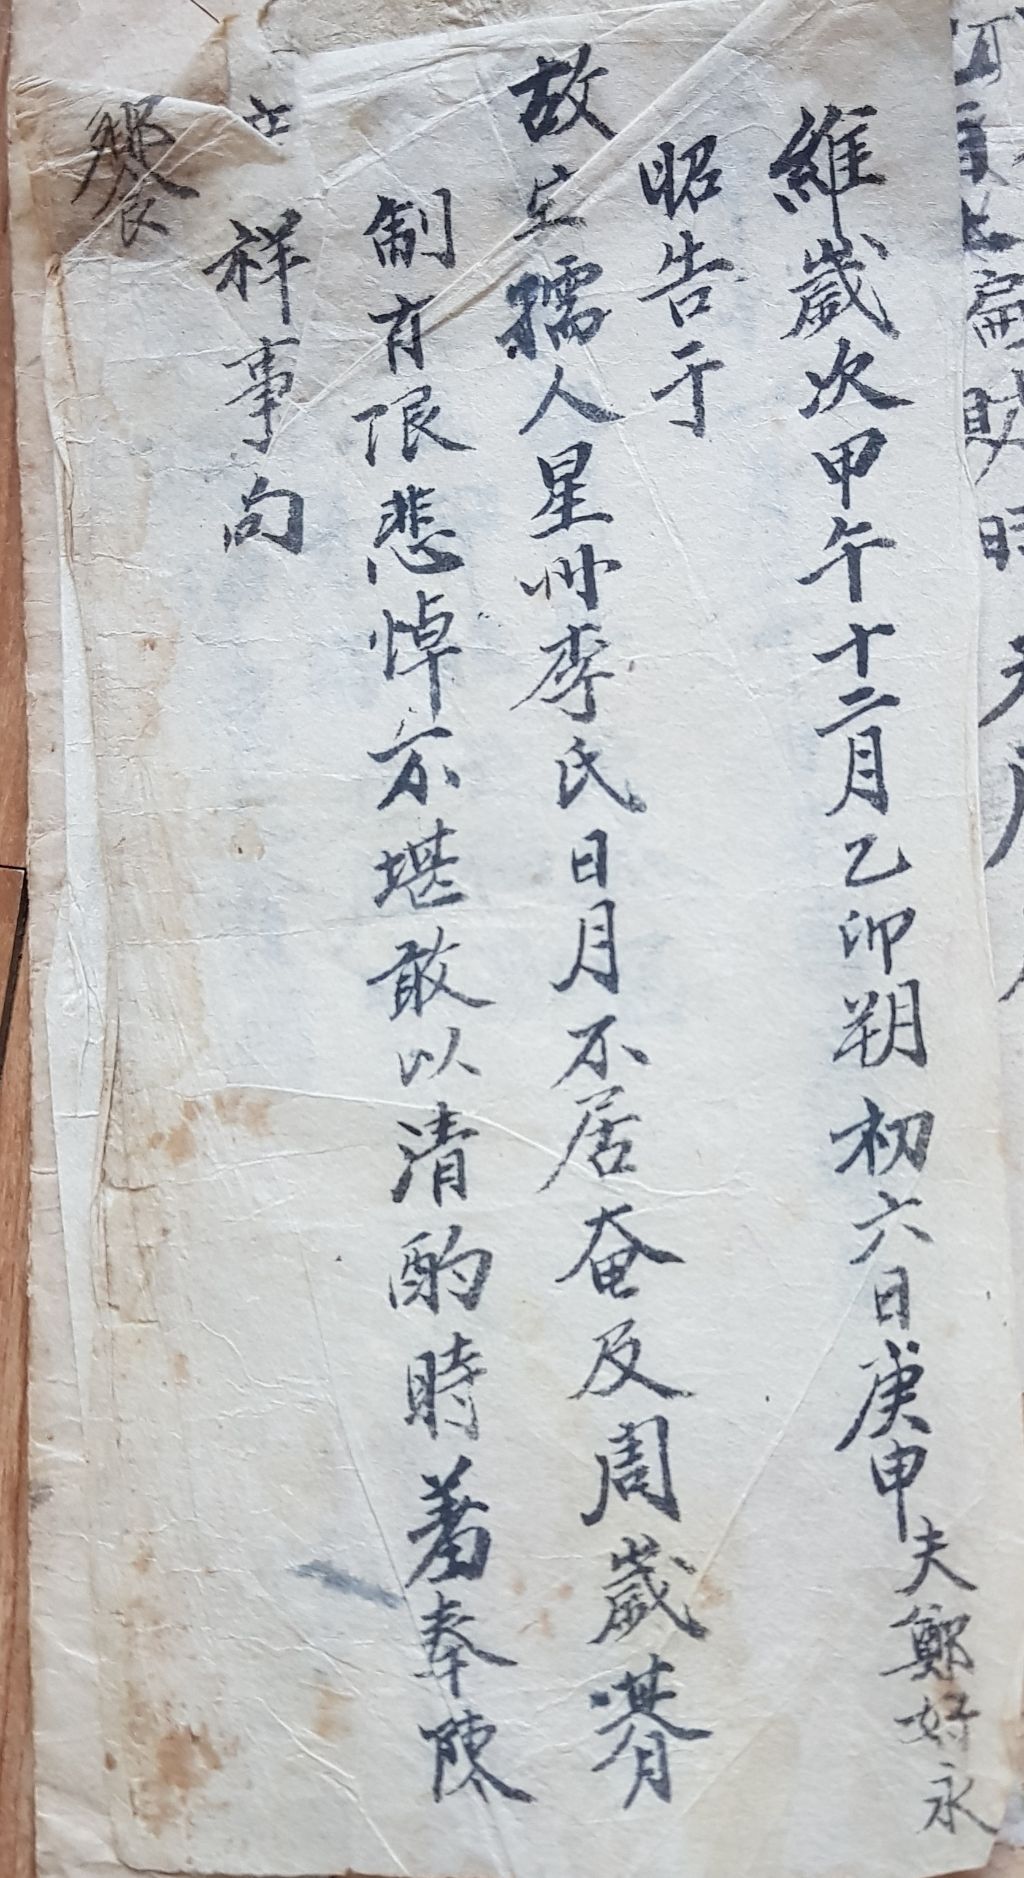 維歲次甲午十二月乙卯朔初六日庚申夫鄭好永
昭告于
故室孺人星州李氏日月不居奄及周歲朞
制有限悲悼不堪敢以清酌時羞奉陳
祥事尙
饗